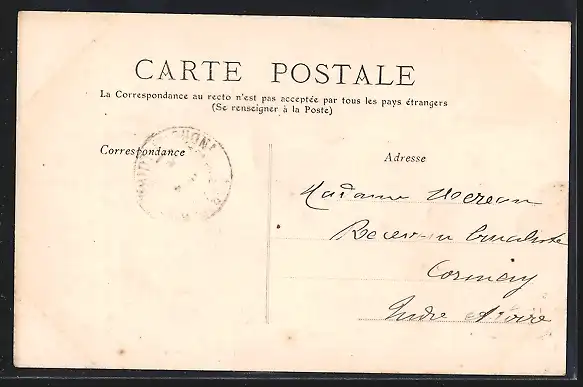 CARTE POSTALE
La Correspondance au recto n'est pas acceptée par tous les pays étrangers
(Se renseigner à la Poste)
Correspondance
Adresse
Madame Moreau
Cormery
Indre et Loire